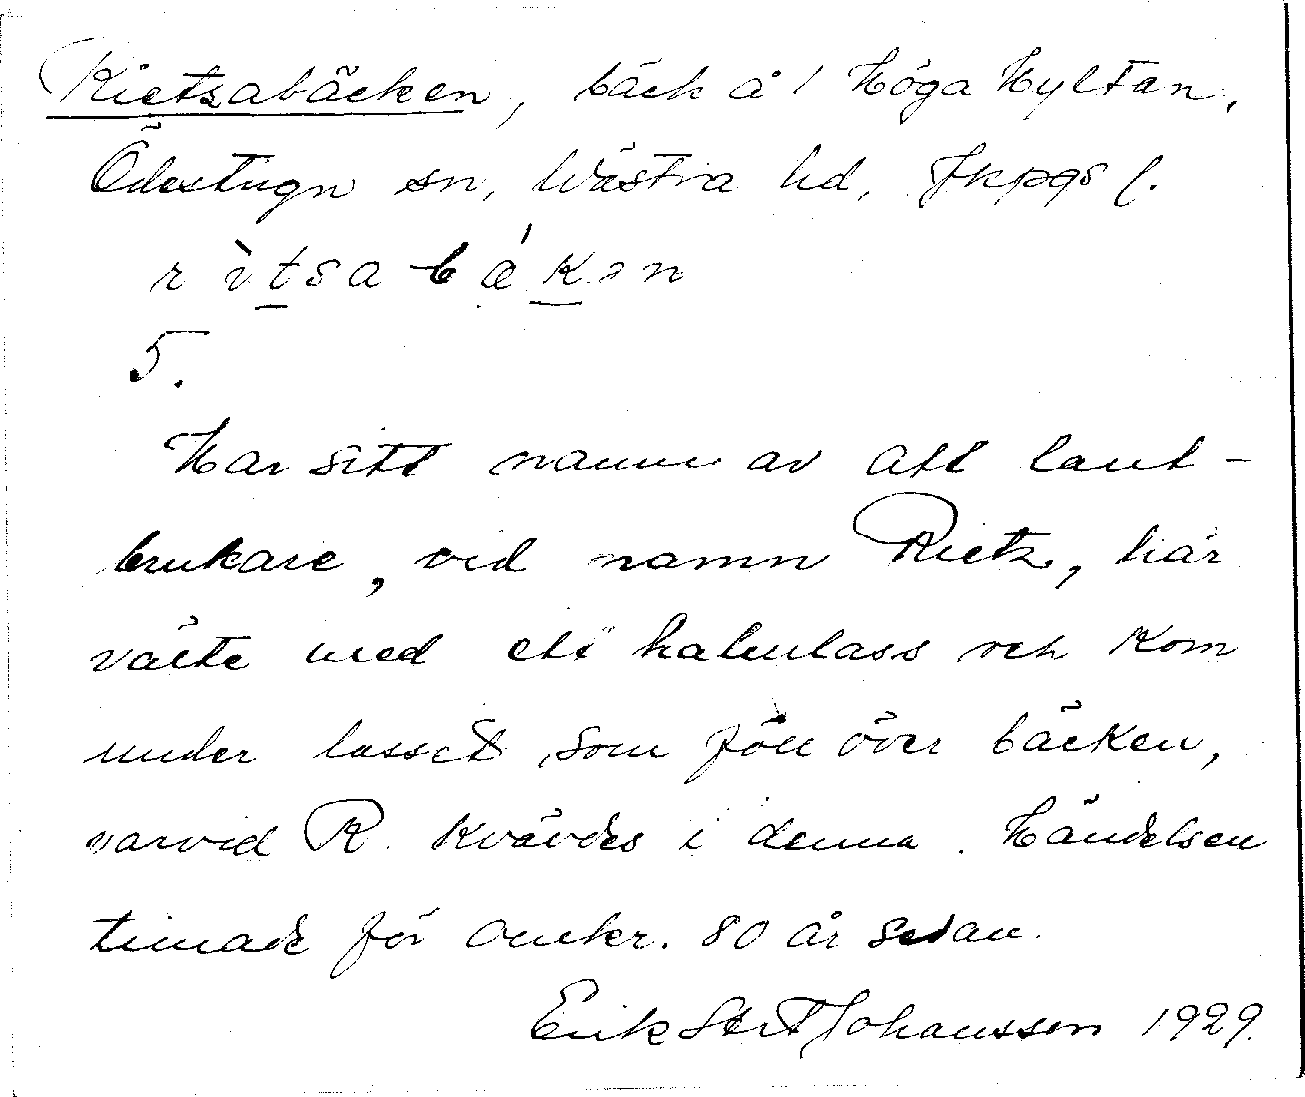 Rietsabäcken, bäck å / Höga Hyltan,
Ödestugu sn, Västra hd, Jkpgs l.
rìtsabǽkən
5.
Har sitt namn av att lant-
brukare, vid namn Rietz, här
välte med ett halmlass och kom
under lasset som föll över bäcken,
varvid R. kvävdes i denna. Händelsen
timade för omkr. 80 år sedan.
Erik Johansson 1929.